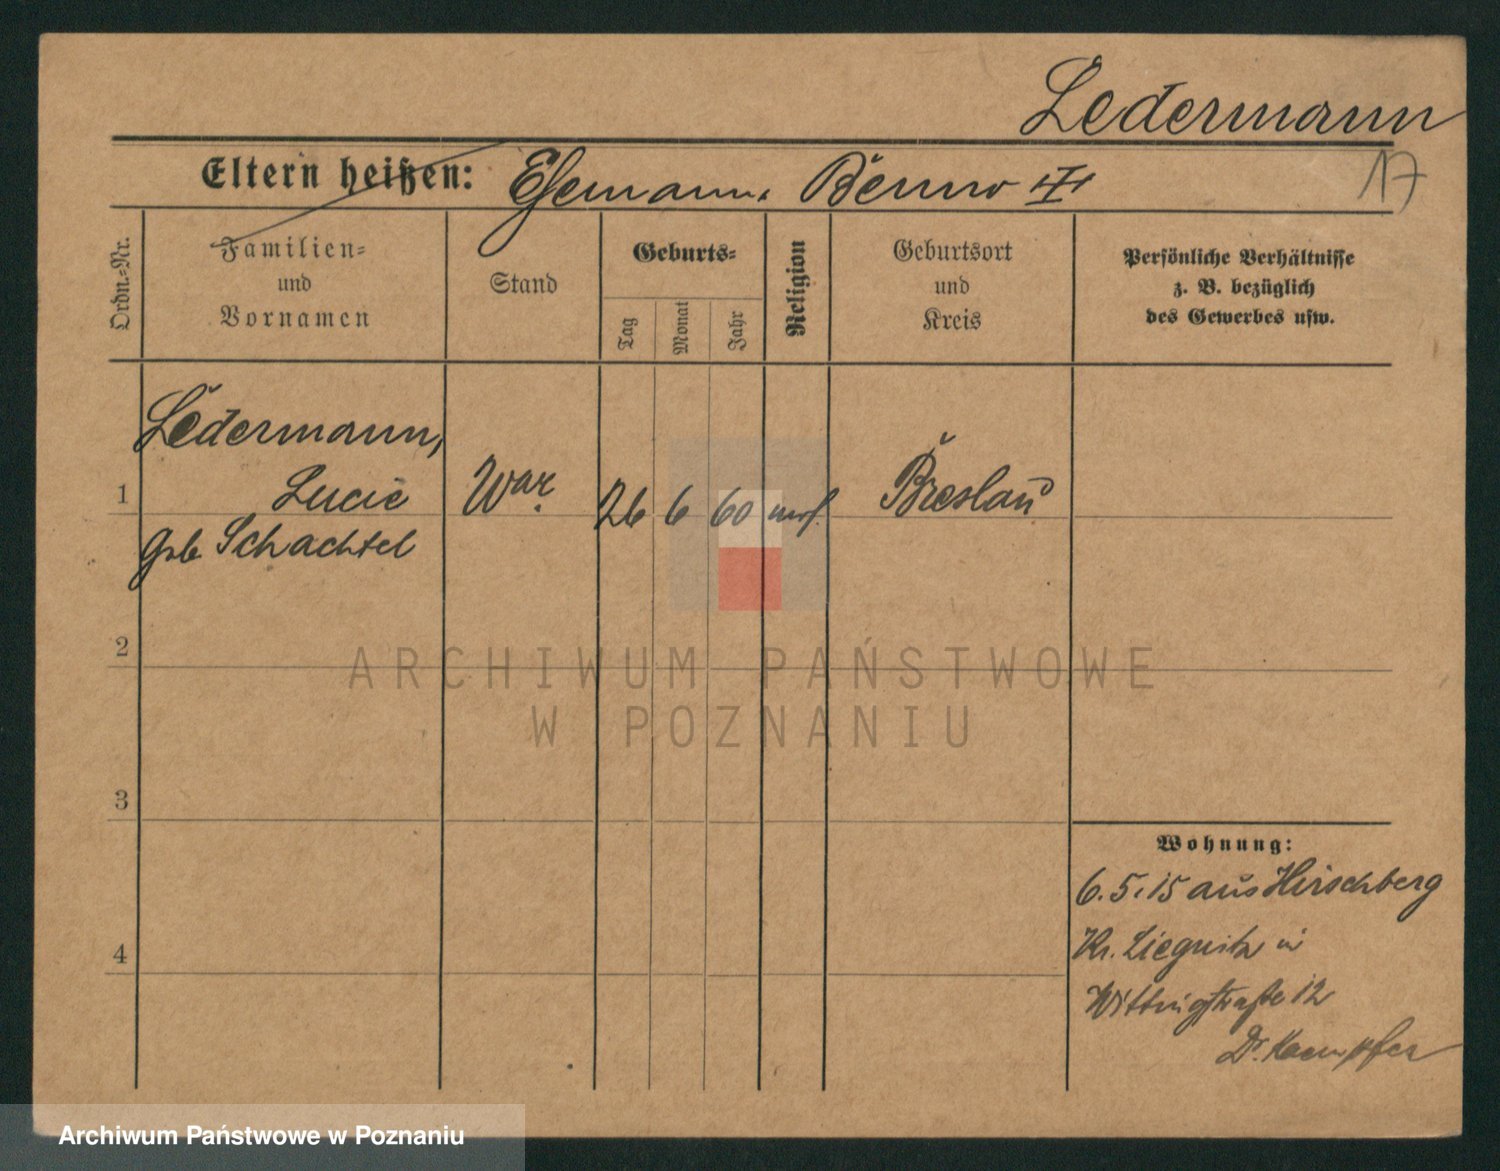 Ledermann
17
Eltern heißen: Ehemann: Benno III
Ordn.-Nr.
Familien-
und
Vornamen
Stand
Geburts-
Tag
Monat
Jahr
Religion
Geburtsort
und
Kreis
Persönliche Verhältnisse
z. B. bezüglich
des Gewerbes usw.
Ledermann,
1 Lucie War. 26 6 60 mos. Breslau
geb. Schachtel
2
ARCHIWUM PAŃSTWOWE
W POZNANIU
3
Wohnung:
6.5.15 aus Hirschberg
Kr. Liegnitz in
4
Wittingstraße 12
Dr. Kaempfer
Archiwum Państwowe w Poznaniu